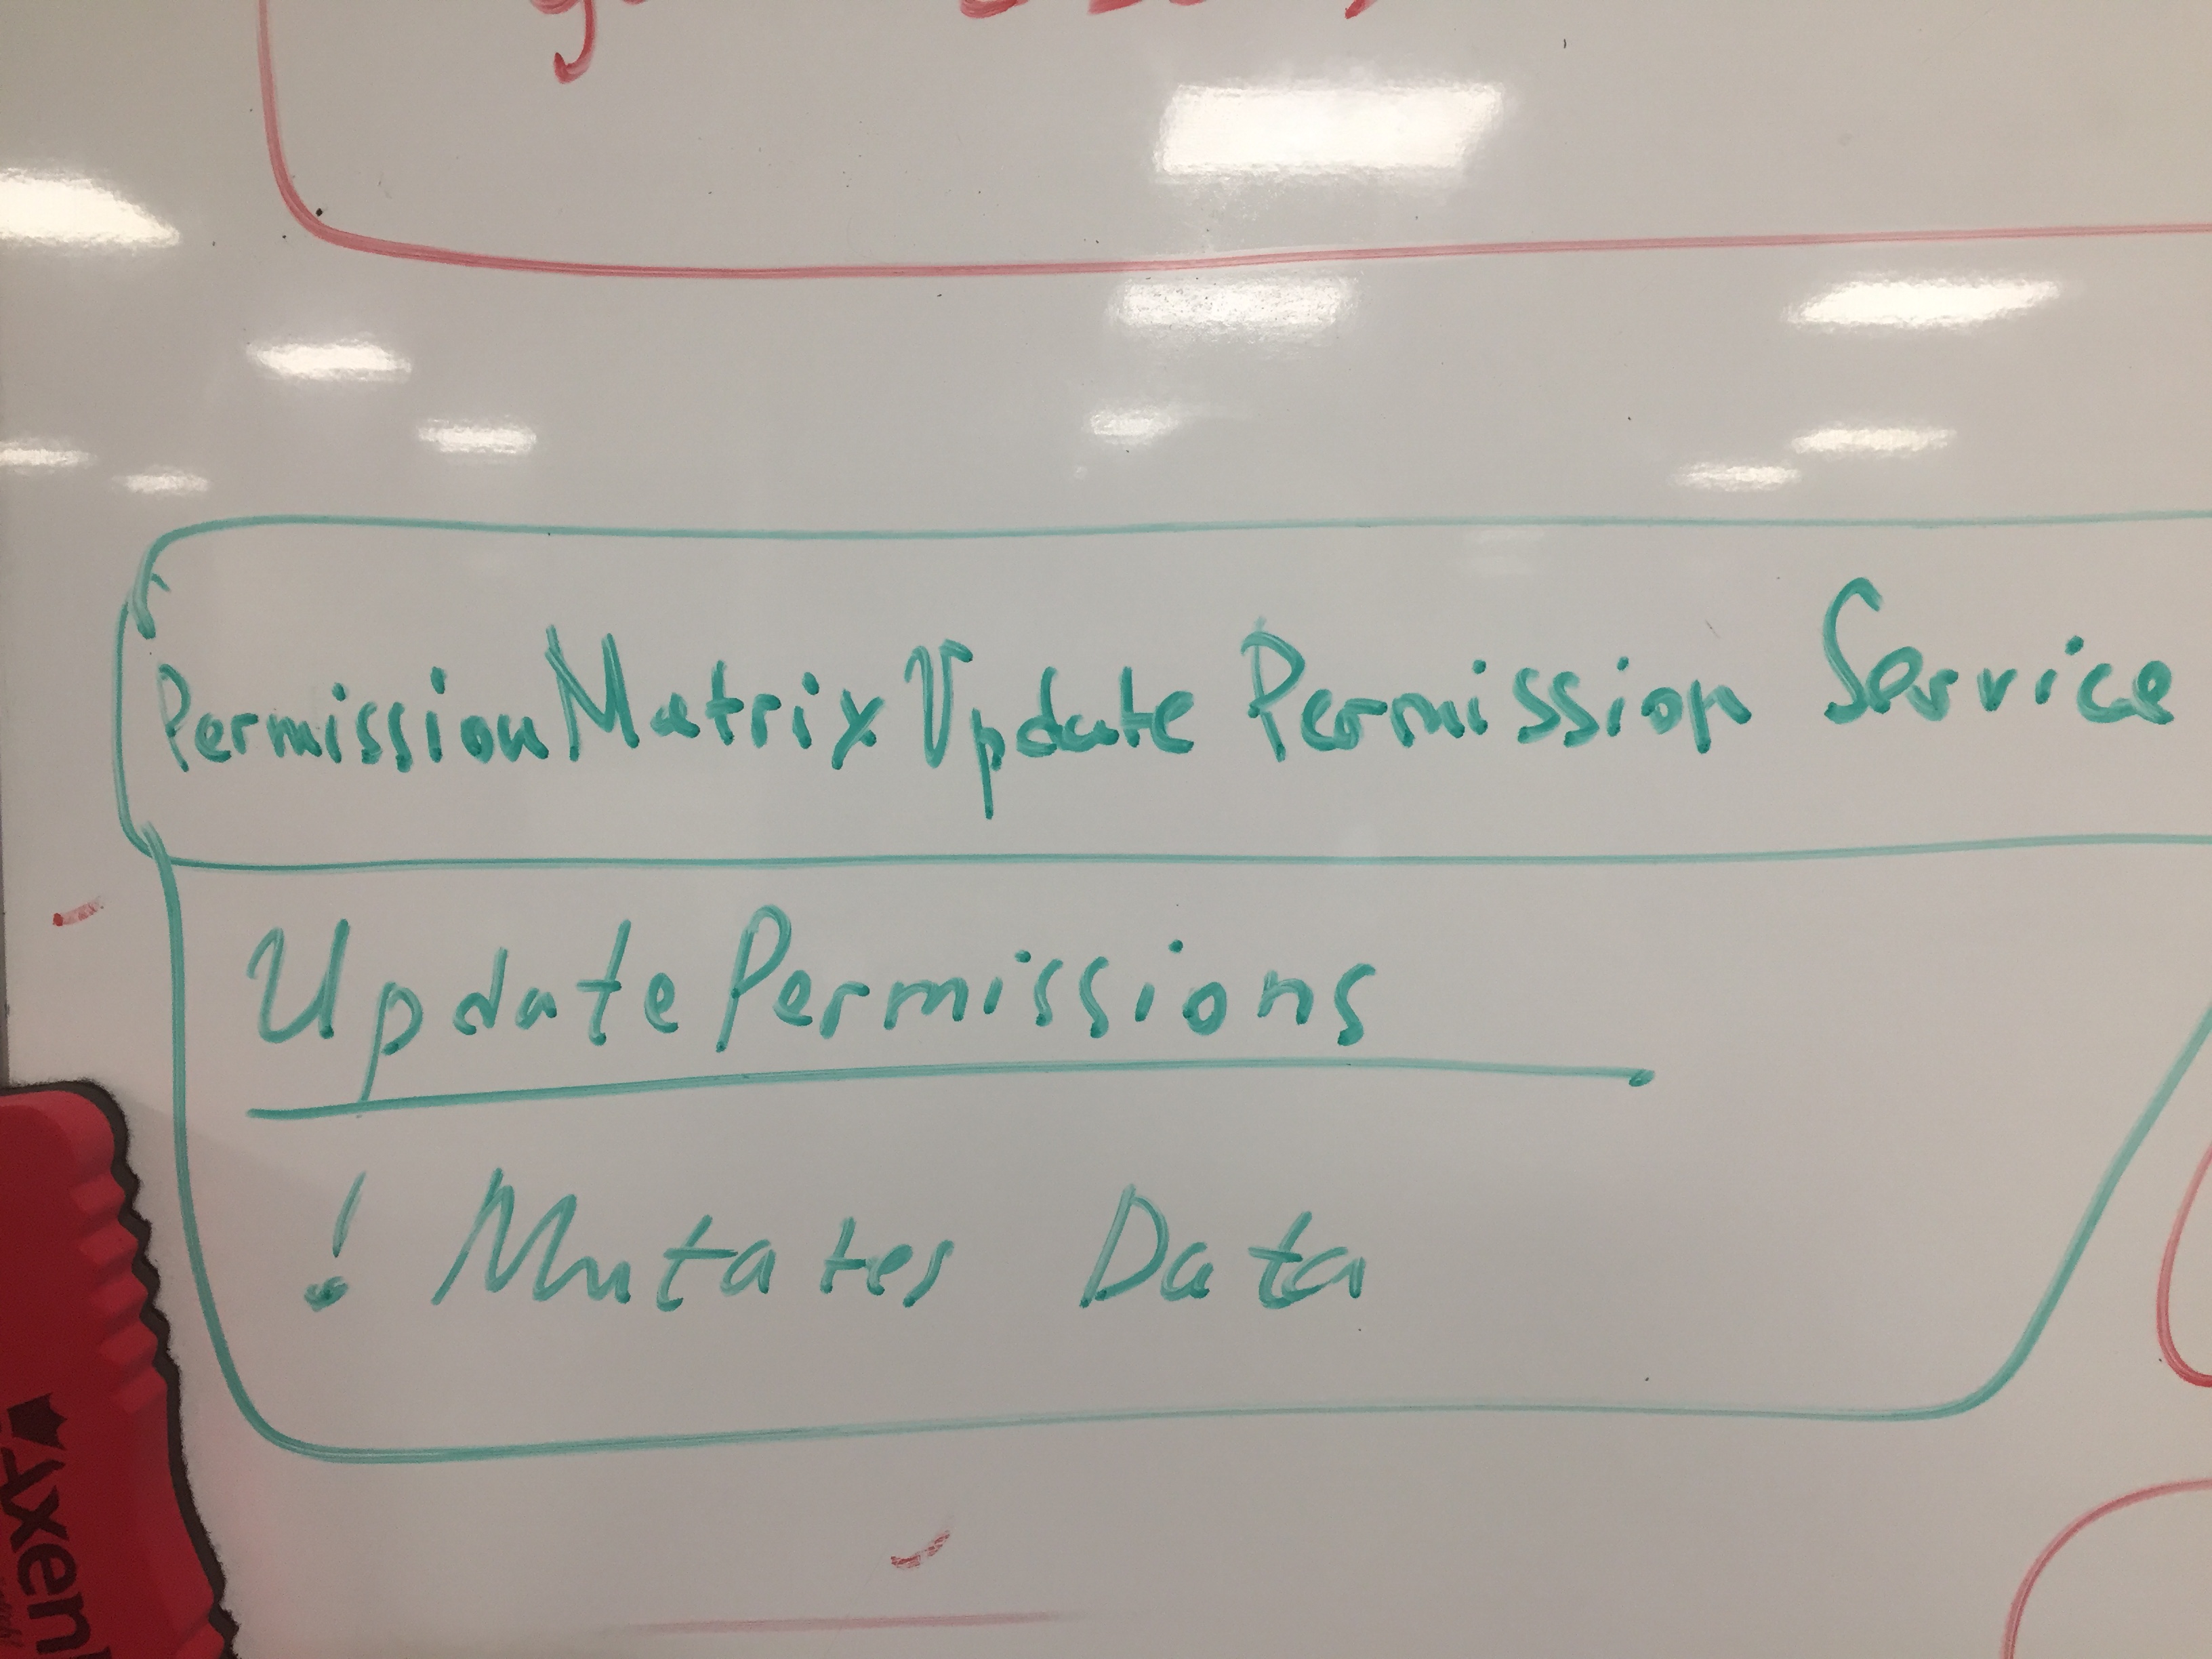 PermissionMatrixUpdate Permission Service
UpdatePermissions
! Mutates Data